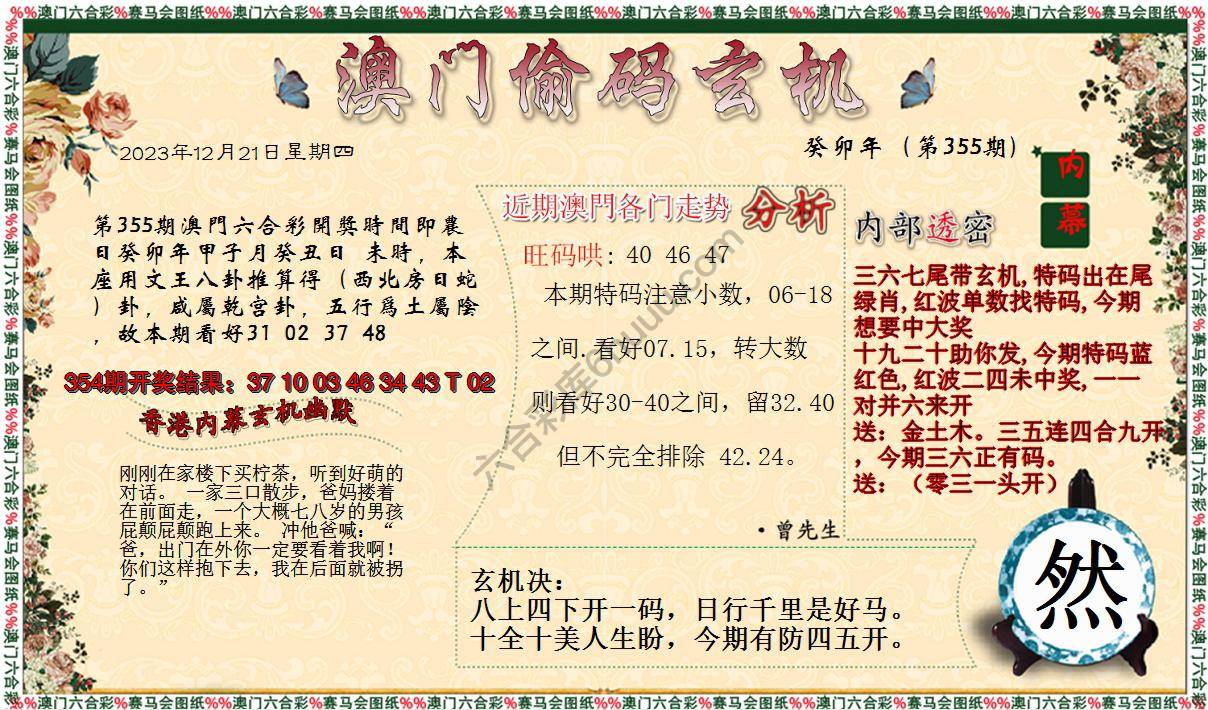 %%澳门六合彩%赛马会图纸%%澳门六合彩%赛马会图纸%%澳门六合彩%赛马会图纸%%澳门六合彩%赛马会图纸%%澳门六合彩%赛马会图纸%%澳门六合彩%赛马会图纸%%
澳门偷码玄机
2023年12月21日星期四
癸卯年（第355期）
内
幕
第355期澳門六合彩開獎時間即農
日癸卯年甲子月癸丑日 未時，本
座用文王八卦推算得（西北房日蛇
）卦，咸屬乾宫卦，五行爲土屬陰
，故本期看好31 02 37 48
354期开奖结果：37 10 03 46 34 43 T 02
香港内幕玄机幽默
刚刚在家楼下买柠茶，听到好萌的
对话。 一家三口散步，爸妈搂着
在前面走，一个大概七八岁的男孩
屁颠屁颠跑上来。 冲他爸喊：“
爸，出门在外你一定要看着我啊！
你们这样抱下去，我在后面就被拐
了。”
近期澳門各门走势 分析
旺码哄: 40 46 47
本期特码注意小数，06-18
之间.看好07.15，转大数
则看好30-40之间，留32.40
但不完全排除 42.24。
·曾先生
内部透密
三六七尾带玄机,特码出在尾
绿肖,红波单数找特码,今期
想要中大奖
十九二十助你发,今期特码蓝
红色,红波二四未中奖,一一
对并六来开
送：金土木。三五连四合九开
，今期三六正有码。
送：（零三一头开）
玄机决：
八上四下开一码，日行千里是好马。
十全十美人生盼，今期有防四五开。
然
%%澳门六合彩%赛马会图纸%%澳门六合彩%赛马会图纸%%澳门六合彩%赛马会图纸%%澳门六合彩%赛马会图纸%%澳门六合彩%赛马会图纸%%澳门六合彩%赛马会图纸%%